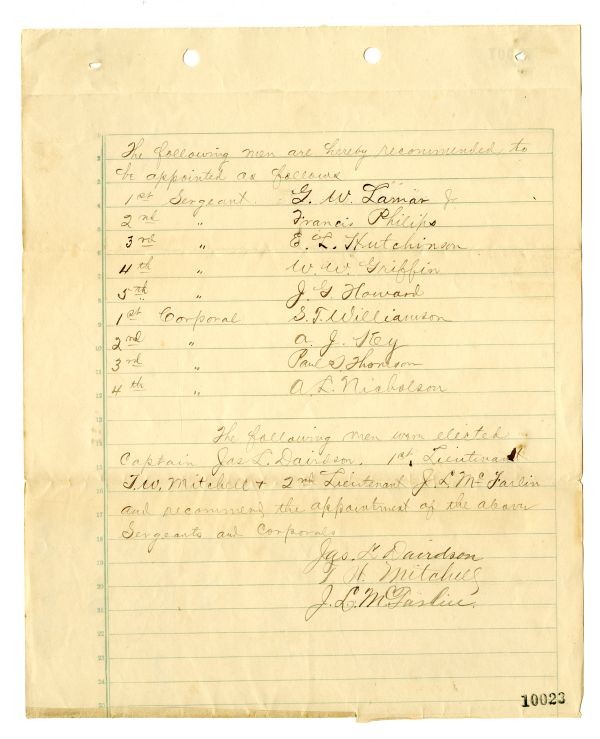 The following men are hereby recommended to
be appointed as follows
1st Sergeant. G. W. Lamar Jr
2nd " Francis Philips
3rd " E. L. Hutchinson
4th " W. W. Griffin
5th " J. G. Howard
1st Corporal S. T. Williamson
2nd " A. J. Key
3rd " Paul Thomson
4th " A. L. Nicholson
The following men were elected
Captain Jas L. Davidson. 1st Lieutenant
T. W. Mitchell + 2nd Lieutenant J L McFarlin
and recommend the appointment of the above
Sergeants and Corporals
Jas. L. Davidson
T W. Mitchell
J. L. McFarlin.
10023